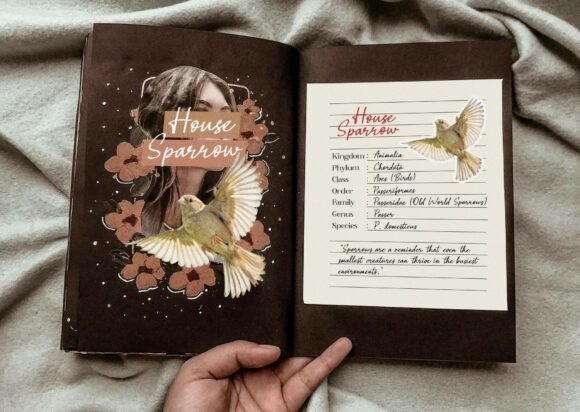 House
Sparrow
House
Sparrow
Kingdom : Animalia
Phylum : Chordata
Class : Aves (Birds)
Order : Passeriformes
Family : Passeridae (Old World Sparrows)
Genus : Passer
Species : P. domesticus
"Sparrows are a reminder that even the
smallest creatures can thrive in the busiest
environments."